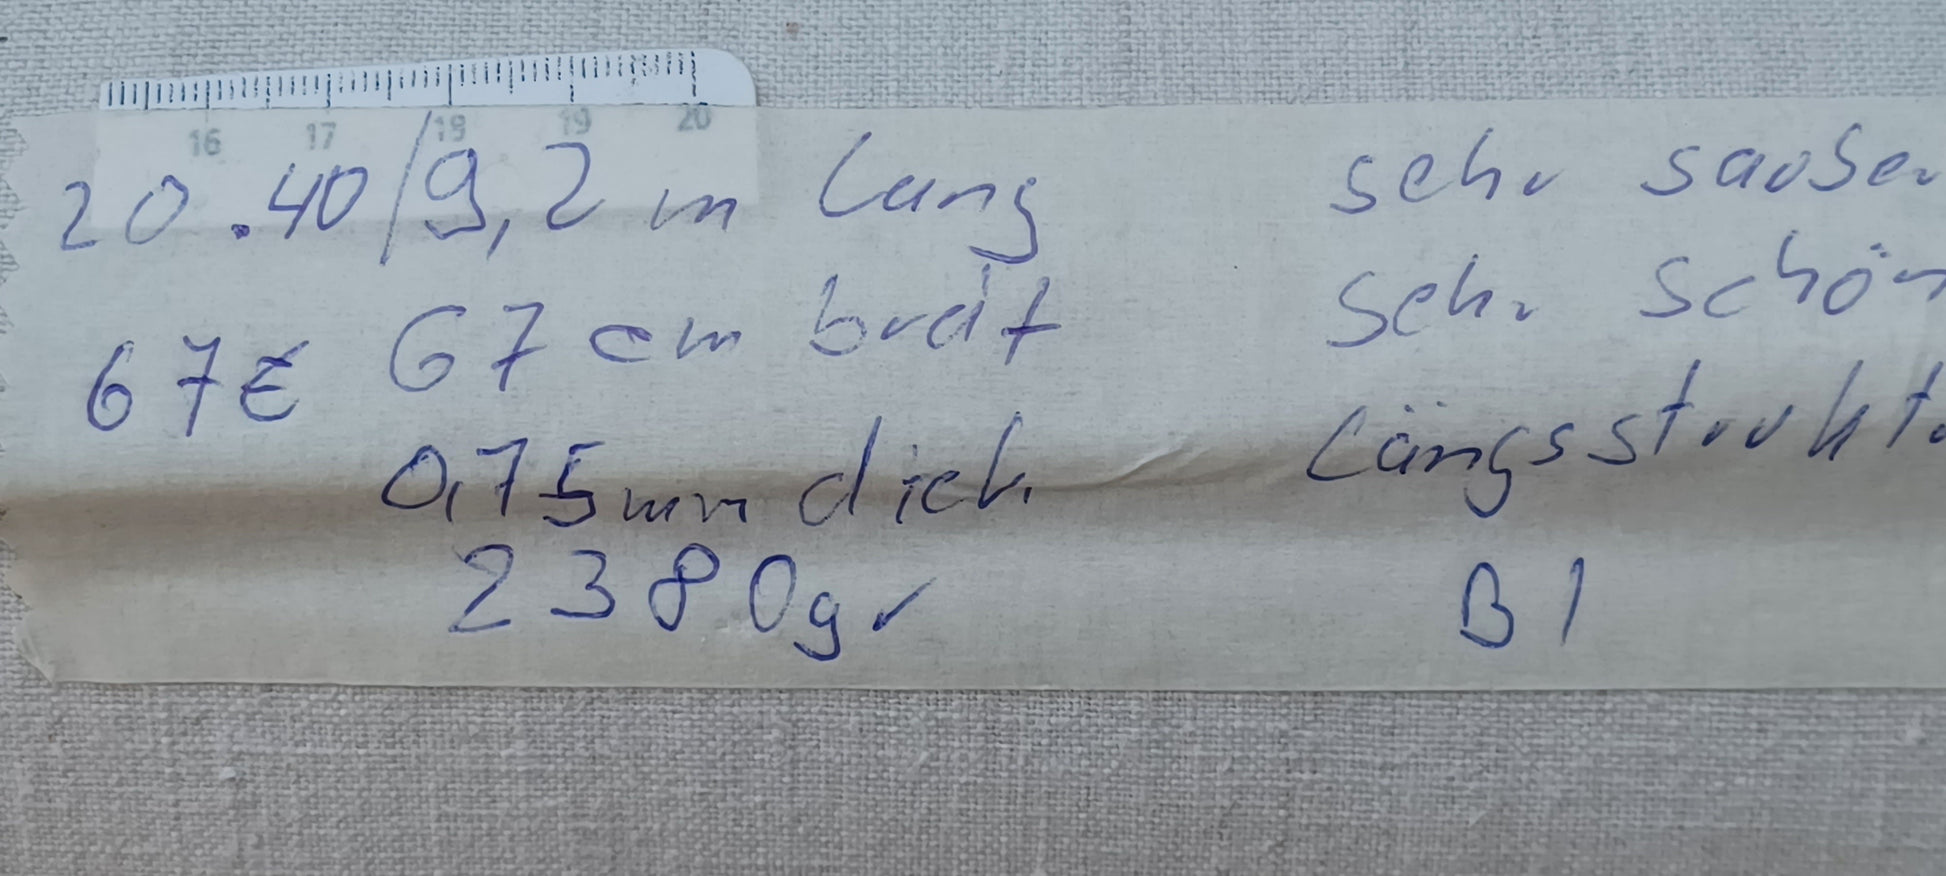 16 17 18 19 20
20.40/9,2 m lang
67 cm breit
67€
0,75mm dick
2380gr
sehr sauber
sehr schön
Längsstrukt.
B1